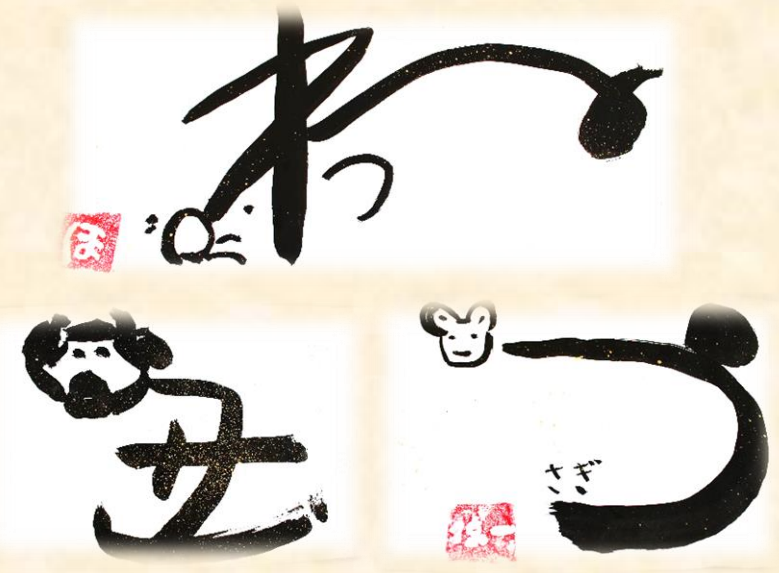 ね
ほ
丑
う
さぎ